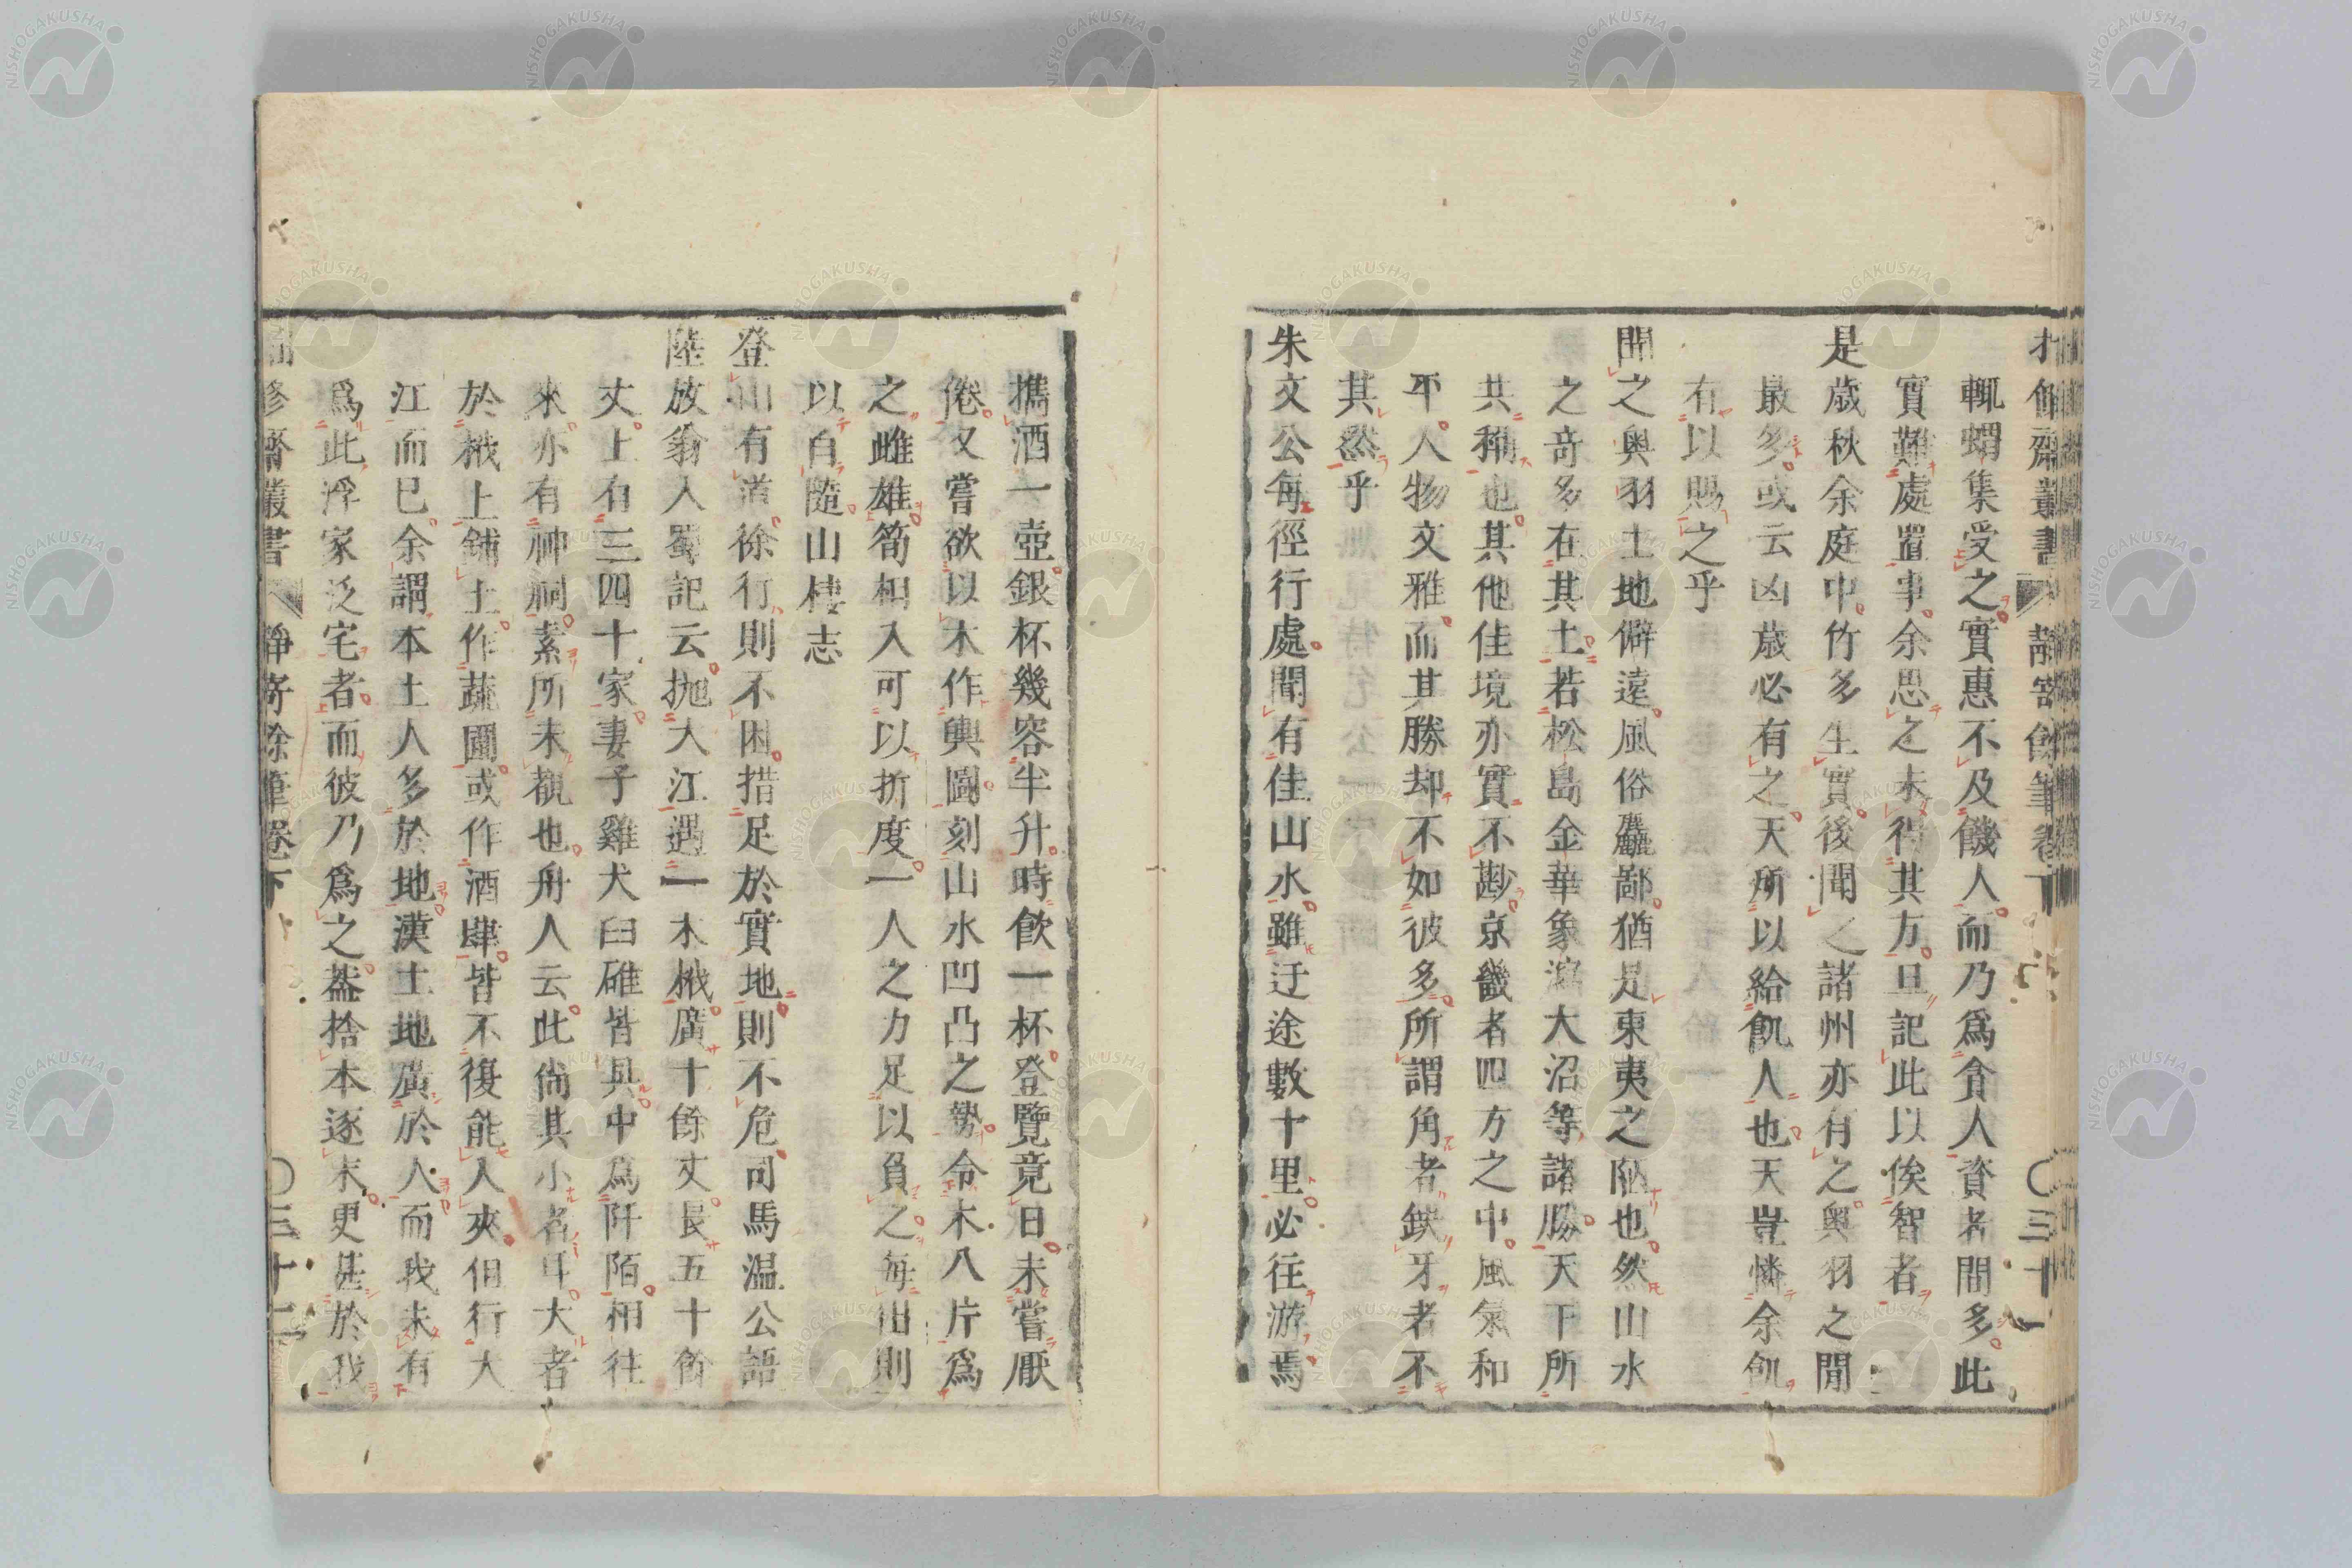 拙修齋叢書 靜寄餘筆卷下 〇三十一
輒蝟集受之實惠不及饑人而乃爲貪人資者間多此
實難處置事余思之未得其方且記此以俟智者
是歳秋余庭中竹多生實後聞之諸州亦有之奧羽之間
最多或云凶歳必有之天所以給飢人也天豈憐余飢
有以賜之乎
聞之奧羽土地僻遠風俗麤鄙猶是東夷之陋也然山水
之奇多在其土若松島金華象潟大沼等諸勝天下所
共稱也其他佳境亦實不尠京畿者四方之中風氣和
平人物文雅而其勝却不如彼多所謂角者鈌牙者不
其然乎
朱文公每徑行處聞有佳山水雖迂途數十里必往游焉
攜酒一壺銀杯幾容半升時飮一杯登覽竟日未嘗厭
倦又嘗欲以木作輿圖刻山水凹凸之勢令木八片爲
之雌雄筍相入可以折度一人之力足以負之每出則
以自隨山棲志
登山有道徐行則不困措足於實地則不危司馬温公語
陸放翁入蜀記云拋大江遇一木栰廣十餘丈長五十餘
丈上有三四十家妻子雞犬臼碓皆具中爲阡陌相往
來亦有神祠素所未覩也舟人云此尚其小者耳大者
於栰上鋪土作蔬圃或作酒肆皆不復能入夾但行大
江而已余謂本土人多於地漢土地廣於人而我未有
爲此浮家泛宅者而彼乃爲之葢捨本逐末更甚於我
拙修齋叢書 靜寄餘筆卷下 〇三十二
NISHOGAKUSHA